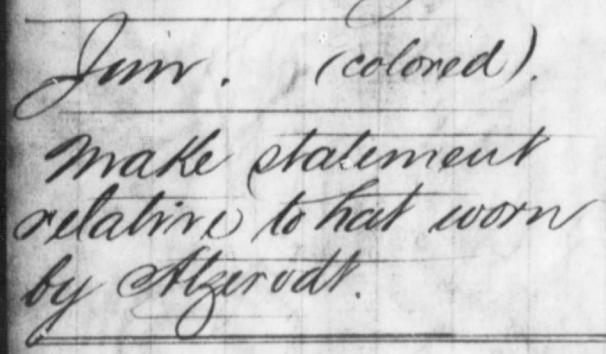 Jim. (colored).
Make statement
relative to hat worn
by Atzerodt.